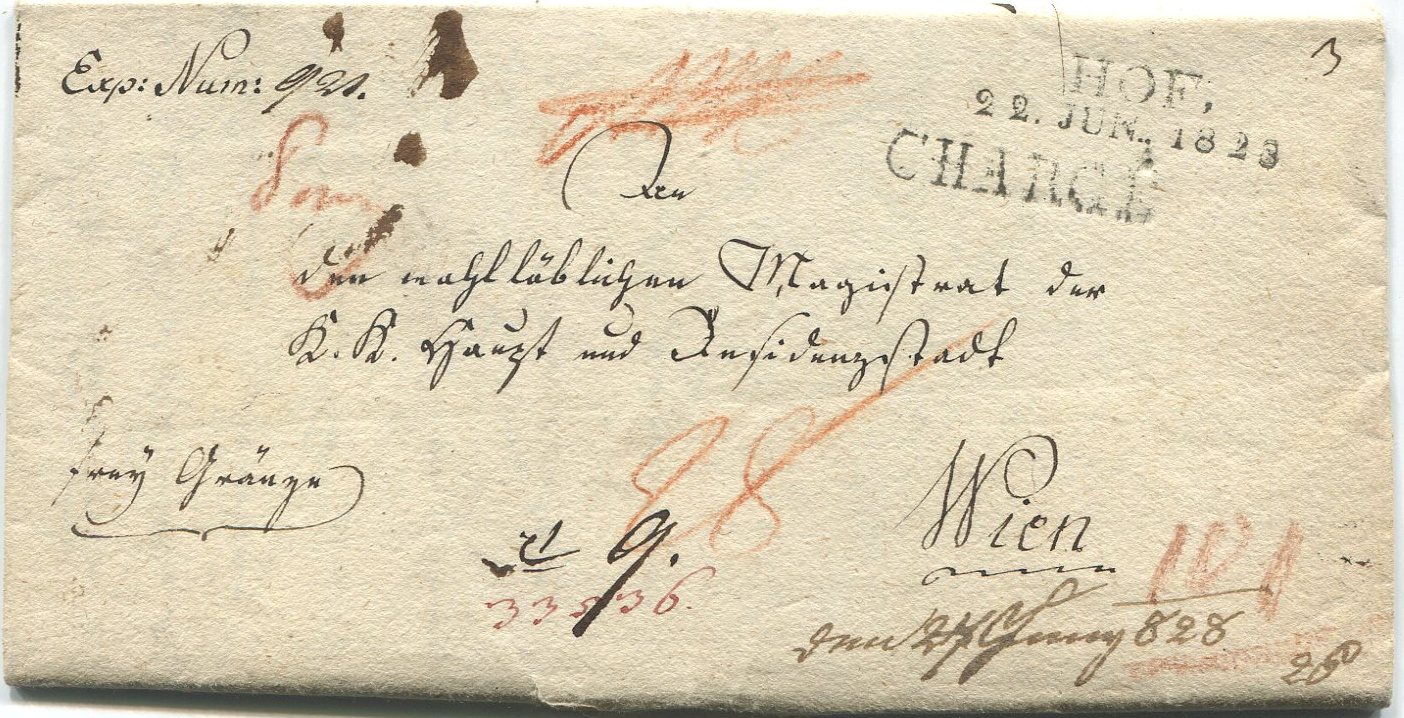 Exp: Num: 921.
3
HOF,
22. JUN. 1828
CHARGÉ
An
den wohllöblichen Magistrat der
K. K. Haupt und Residenzstadt
frey Gränze
28
Wien
9.
33536.
den 27 Juny 828